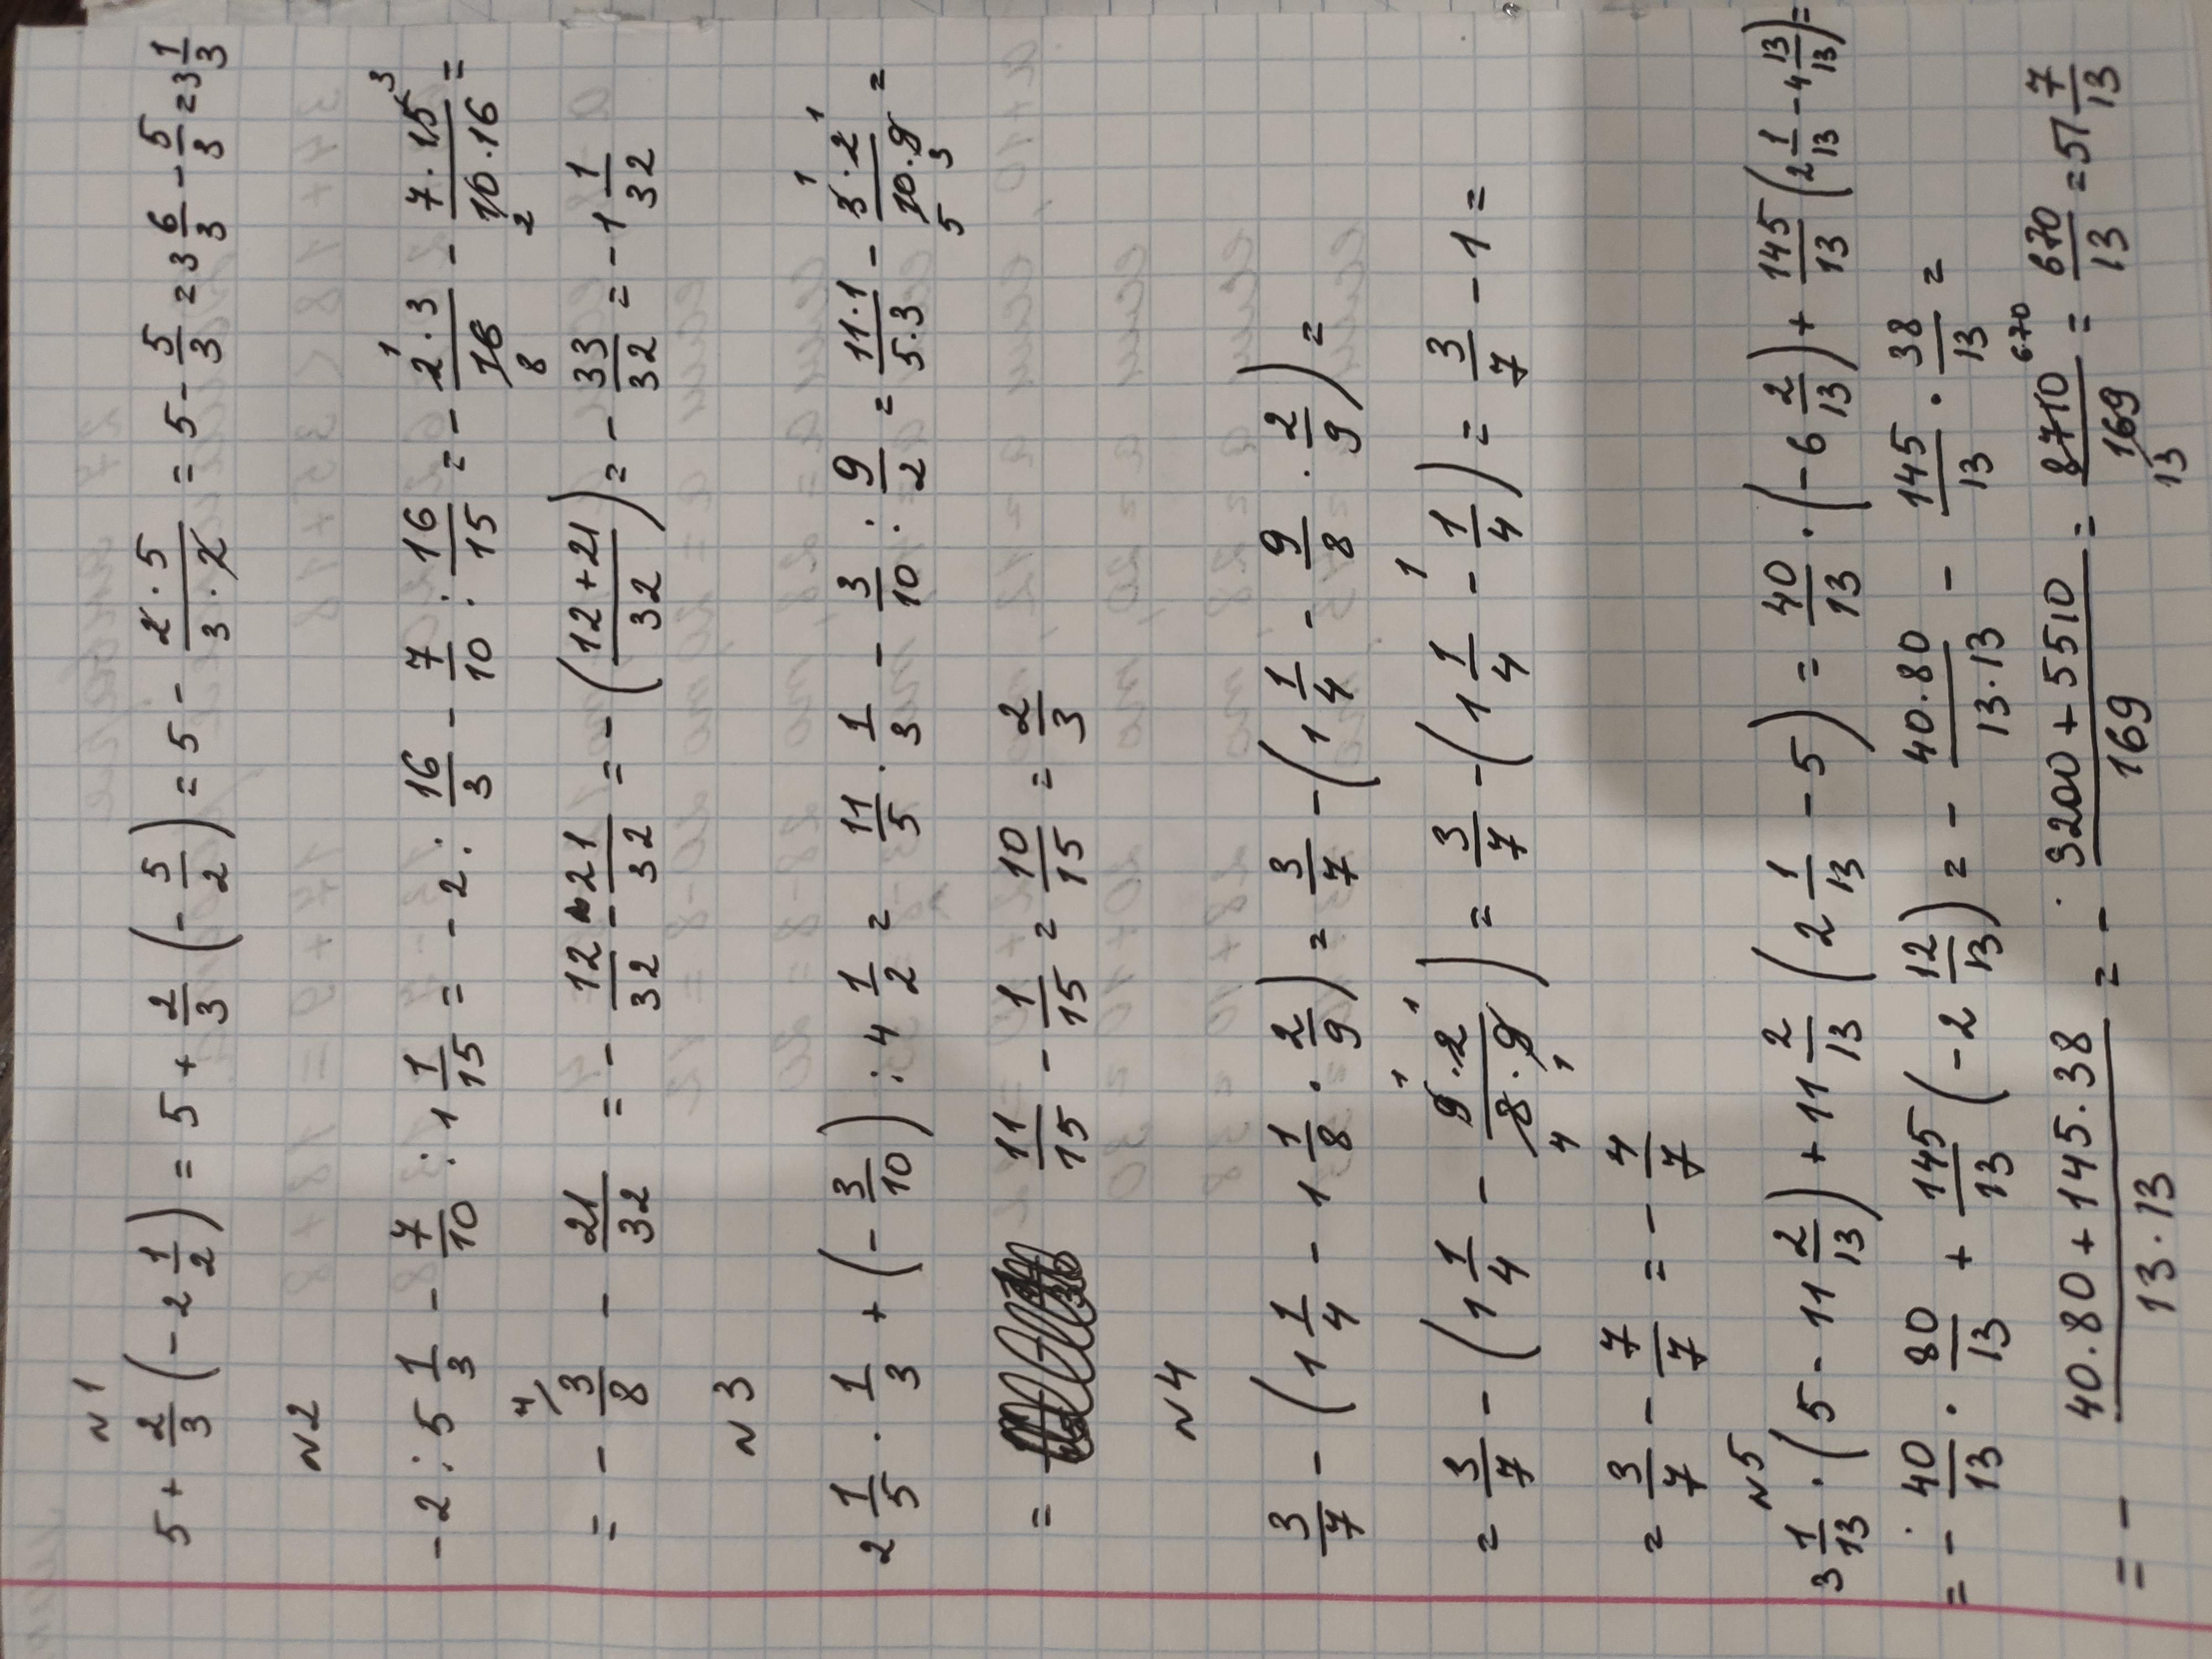 N1
5 + 2/3 (-2 1/2) = 5 + 2/3 (-5/2) = 5 - 2·5/3·2 = 5 - 5/3 = 3 6/3 - 5/3 = 3 1/3
N2
-2 : 5 1/3 - 7/10 : 1 1/15 = -2 : 16/3 - 7/10 : 16/15 = - 2·3/16 - 7·15/10·16 =
= - 3/8 - 21/32 = - 12/32 - 21/32 = - (12+21/32) = - 33/32 = -1 1/32
N3
2 1/5 · 1/3 + (-3/10) : 4 1/2 = 11/5 · 1/3 - 3/10 : 9/2 = 11·1/5·3 - 3·2/10·9 =
= 11/15 - 1/15 = 10/15 = 2/3
N4
3/7 - (1 1/4 - 1 1/8 · 2/9) = 3/7 - (1 1/4 - 9/8 · 2/9) =
= 3/7 - (1 1/4 - 9·2/8·9) = 3/7 - (1 1/4 - 1/4) = 3/7 - 1 =
= 3/7 - 7/7 = - 4/7
N5
3 1/13 · (5 - 11 2/13) + 11 2/13 (2 1/13 - 5) = 40/13 · (-6 2/13) + 145/13 (2 1/13 - 4 13/13) =
= - 40/13 · 80/13 + 145/13 (-2 12/13) = - 40·80/13·13 - 145/13 · 38/13 =
= - 40·80+145·38/13·13 = - 3200+5510/169 = 8710/169 = 670/13 = 51 7/13